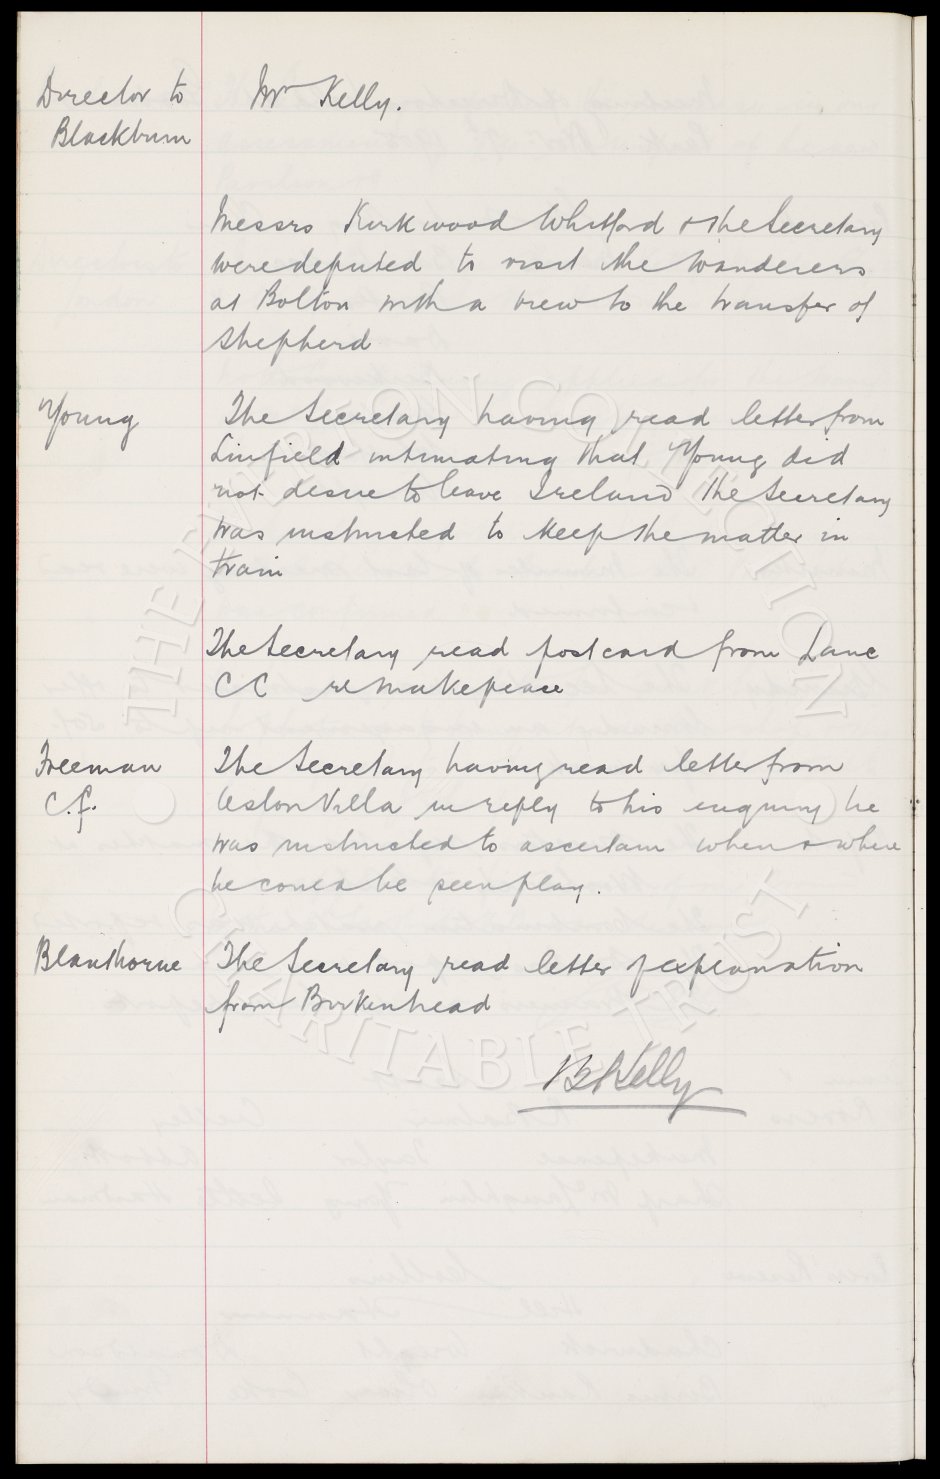 Director to Mr Kelly.
Blackburn
Messrs Kirkwood Whitford & the Secretary
were deputed to visit the Wanderers
at Bolton with a view to the transfer of
Shepherd
Young The Secretary having read letter from
Linfield intimating that Young did
not desire to leave Ireland the Secretary
was instructed to keep the matter in
train
The Secretary read postcard from Lanc
CC re Makepeace
Freeman The Secretary having read letter from
C.f. Aston Villa in reply to his enquiry he
was instructed to ascertain when & where
he could be seen play.
Blanthorne The Secretary read letter of explanation
from Birkenhead
B Kelly
THE EVERTON COLLECTION
CHARITABLE TRUST